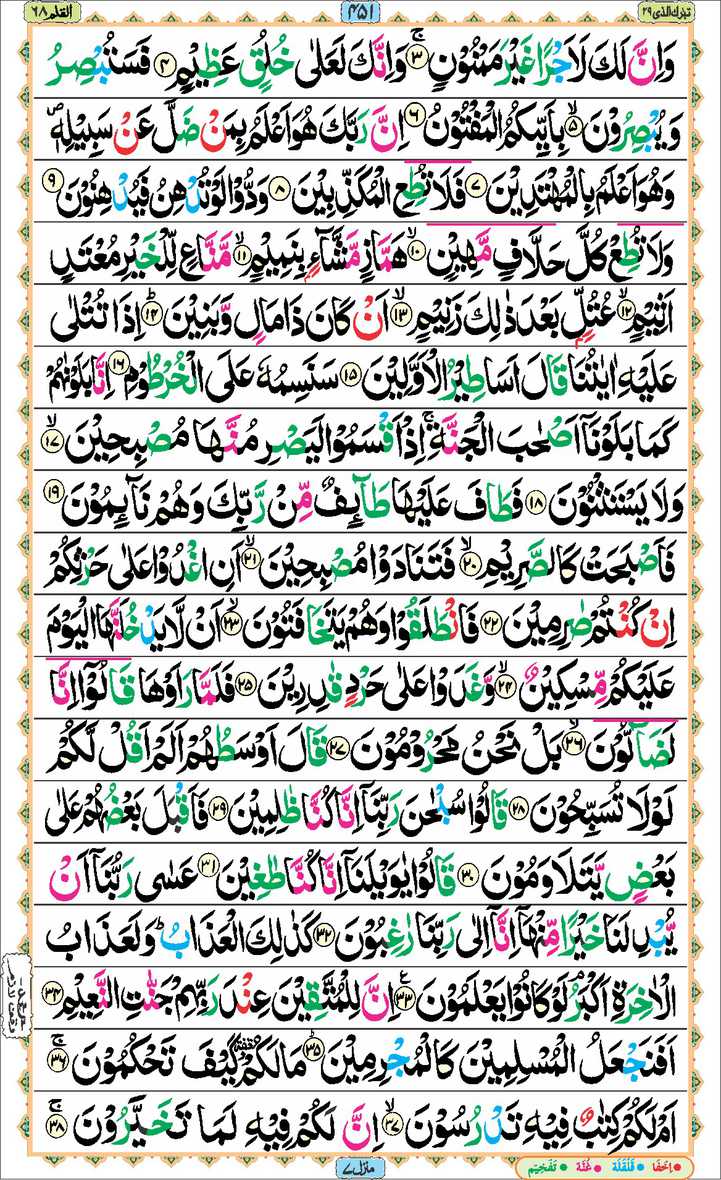 تبٰرك الذی ۲۹
۴۵۱
القلم ۶۸
وَاِنَّ لَكَ لَاَجْرًا غَيْرَ مَمْنُوْنٍۚ ۳ وَاِنَّكَ لَعَلٰى خُلُقٍ عَظِيْمٍ ۴ فَسَتُبْصِرُ
وَيُبْصِرُوْنَۙ ۵ بِاَيِّىكُمُ الْمَفْتُوْنُ ۶ اِنَّ رَبَّكَ هُوَ اَعْلَمُ بِمَنْ ضَلَّ عَنْ سَبِيْلِهٖ۪
وَهُوَ اَعْلَمُ بِالْمُهْتَدِيْنَ ۷ فَلَا تُطِعِ الْمُكَذِّبِيْنَ ۸ وَدُّوْا لَوْ تُدْهِنُ فَيُدْهِنُوْنَ ۹
وَلَا تُطِعْ كُلَّ حَلَّافٍ مَّهِيْنٍۙ ۱۰ هَمَّازٍ مَّشَّآءٍۭ بِنَمِيْمٍۙ ۱۱ مَّنَّاعٍ لِّلْخَيْرِ مُعْتَدٍ
اَثِيْمٍۙ ۱۲ عُتُلٍّۭ بَعْدَ ذٰلِكَ زَنِيْمٍۙ ۱۳ اَنْ كَانَ ذَا مَالٍ وَّبَنِيْنَؕ ۱۴ اِذَا تُتْلٰى
عَلَيْهِ اٰيٰتُنَا قَالَ اَسَاطِيْرُ الْاَوَّلِيْنَ ۱۵ سَنَسِمُهٗ عَلَى الْخُرْطُوْمِ ۱۶ اِنَّا بَلَوْنٰهُمْ
كَمَا بَلَوْنَاۤ اَصْحٰبَ الْجَنَّةِۚ اِذْ اَقْسَمُوْا لَيَصْرِمُنَّهَا مُصْبِحِيْنَۙ ۱۷
وَلَا يَسْتَثْنُوْنَ ۱۸ فَطَافَ عَلَيْهَا طَآٮِٕفٌ مِّنْ رَّبِّكَ وَهُمْ نَآٮِٕمُوْنَ ۱۹
فَاَصْبَحَتْ كَالصَّرِيْمِۙ ۲۰ فَتَنَادَوْا مُصْبِحِيْنَۙ ۲۱ اَنِ اغْدُوْا عَلٰى حَرْثِكُمْ
اِنْ كُنْتُمْ صٰرِمِيْنَ ۲۲ فَانْطَلَقُوْا وَهُمْ يَتَخَافَتُوْنَۙ ۲۳ اَنْ لَّا يَدْخُلَنَّهَا الْيَوْمَ
عَلَيْكُمْ مِّسْكِيْنٌۙ ۲۴ وَّغَدَوْا عَلٰى حَرْدٍ قٰدِرِيْنَ ۲۵ فَلَمَّا رَاَوْهَا قَالُوْۤا اِنَّا
لَضَآلُّوْنَۙ ۲۶ بَلْ نَحْنُ مَحْرُوْمُوْنَ ۲۷ قَالَ اَوْسَطُهُمْ اَلَمْ اَقُلْ لَّكُمْ
لَوْلَا تُسَبِّحُوْنَ ۲۸ قَالُوْا سُبْحٰنَ رَبِّنَاۤ اِنَّا كُنَّا ظٰلِمِيْنَ ۲۹ فَاَقْبَلَ بَعْضُهُمْ عَلٰى
بَعْضٍ يَّتَلَاوَمُوْنَ ۳۰ قَالُوْا يٰوَيْلَنَاۤ اِنَّا كُنَّا طٰغِيْنَ ۳۱ عَسٰى رَبُّنَاۤ اَنْ
يُّبْدِلَنَا خَيْرًا مِّنْهَاۤ اِنَّاۤ اِلٰى رَبِّنَا رٰغِبُوْنَ ۳۲ كَذٰلِكَ الْعَذَابُؕ وَلَعَذَابُ
الْاٰخِرَةِ اَكْبَرُۘ لَوْ كَانُوْا يَعْلَمُوْنَ ۳۳ اِنَّ لِلْمُتَّقِيْنَ عِنْدَ رَبِّهِمْ جَنّٰتِ النَّعِيْمِ ۳۴
اَفَنَجْعَلُ الْمُسْلِمِيْنَ كَالْمُجْرِمِيْنَؕ ۳۵ مَا لَكُمْ كَيْفَ تَحْكُمُوْنَۚ ۳۶
اَمْ لَكُمْ كِتٰبٌ فِيْهِ تَدْرُسُوْنَۙ ۳۷ اِنَّ لَكُمْ فِيْهِ لَمَا تَخَيَّرُوْنَۚ ۳۸
منزل ۷
اِخفَا قَلْقَلَه غُنَّه تَفْخِيْم